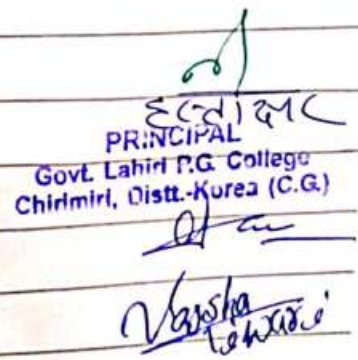 हस्ताक्षर
PRINCIPAL
Govt. Lahiri P.G. College
Chirimiri, Distt.-Korea (C.G.)
Varsha
Tewari